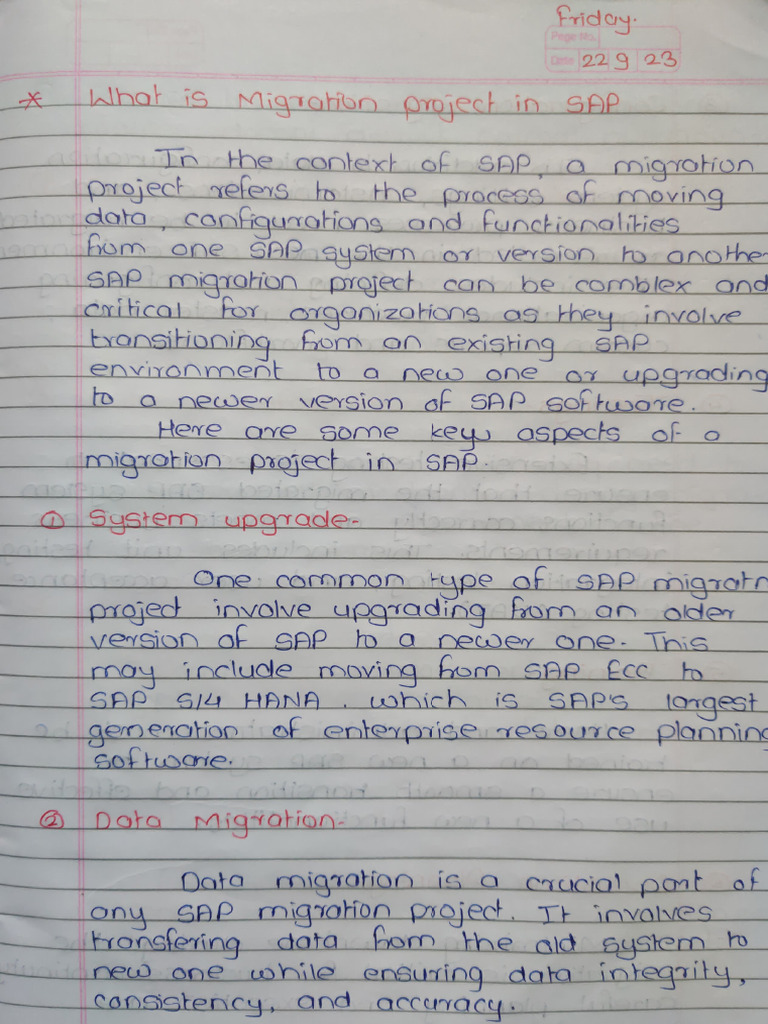 Friday.
Page No.
Date 22 9 23
* What is Migration project in SAP
In the context of SAP, a migration
project refers to the process of moving
data, configurations and functionalities
from one SAP system or version to anothe
SAP migration project can be comblex and
critical for organizations as they involve
transitioning from an existing SAP
environment to a new one or upgrading
to a newer version of SAP software.
Here are some key aspects of a
migration project in SAP.
① System upgrade-
One common type of SAP migratn
project involve upgrading from an older
version of SAP to a newer one. This
may include moving from SAP ECC to
SAP S/4 HANA. which is SAP's largest
generation of enterprise resource planning
software.
② Data Migration-
Data migration is a crucial part of
any SAP migration project. It involves
transfering data from the old system to
new one while ensuring data integrity,
consistency, and accuracy.